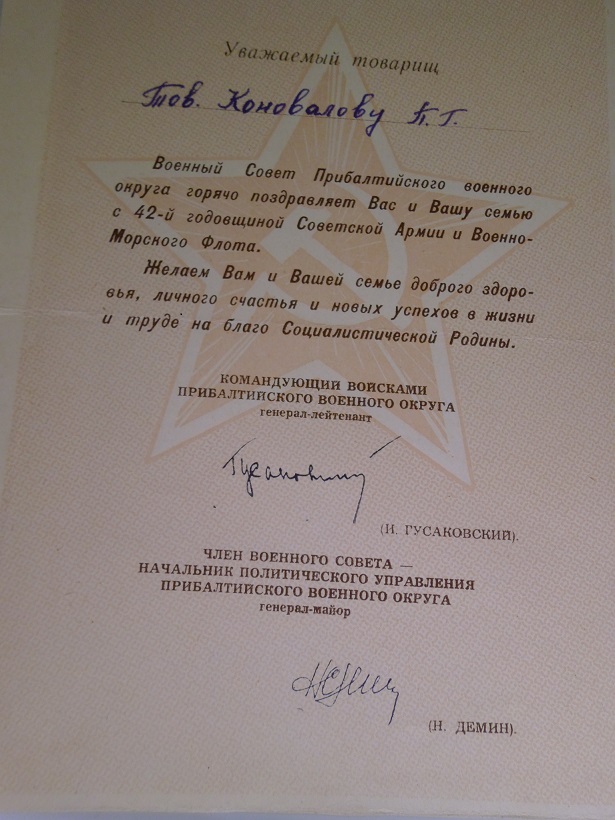 Уважаемый товарищ
Тов. Коновалову П.Г.
Военный Совет Прибалтийского военного
округа горячо поздравляет Вас и Вашу семью
с 42-й годовщиной Советской Армии и Военно-
Морского Флота.
Желаем Вам и Вашей семье доброго здоро-
вья, личного счастья и новых успехов в жизни
и труде на благо Социалистической Родины.
КОМАНДУЮЩИЙ ВОЙСКАМИ
ПРИБАЛТИЙСКОГО ВОЕННОГО ОКРУГА
генерал-лейтенант
Гусаковский
(И. ГУСАКОВСКИЙ).
ЧЛЕН ВОЕННОГО СОВЕТА —
НАЧАЛЬНИК ПОЛИТИЧЕСКОГО УПРАВЛЕНИЯ
ПРИБАЛТИЙСКОГО ВОЕННОГО ОКРУГА
генерал-майор
(Н. ДЕМИН).